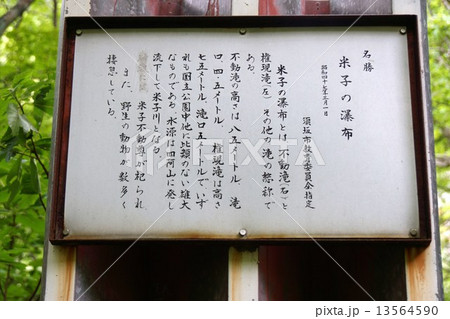 名勝
米子の瀑布
昭和四十七年三月一日
須坂市教育委員会指定
米子の瀑布とは不動滝(右)と
権現滝(左)、その他の滝の総称で
ある。
不動滝の高さは、八五メートル、滝
口、四・五メートル 権現滝は高さ
七五メートル、滝口五メートルで、いず
れも国立公園中他に比類のない雄大
なものである。水源は四阿山に発し
流下して米子川となる。
米子不動尊が祀られ
また、野生の動物が数多く
棲息している。
PIXTA
13564590